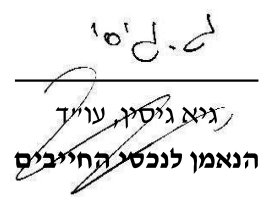 ג. גיסין
גיא גיסין, עו״ד
הנאמן לנכסי החייבים